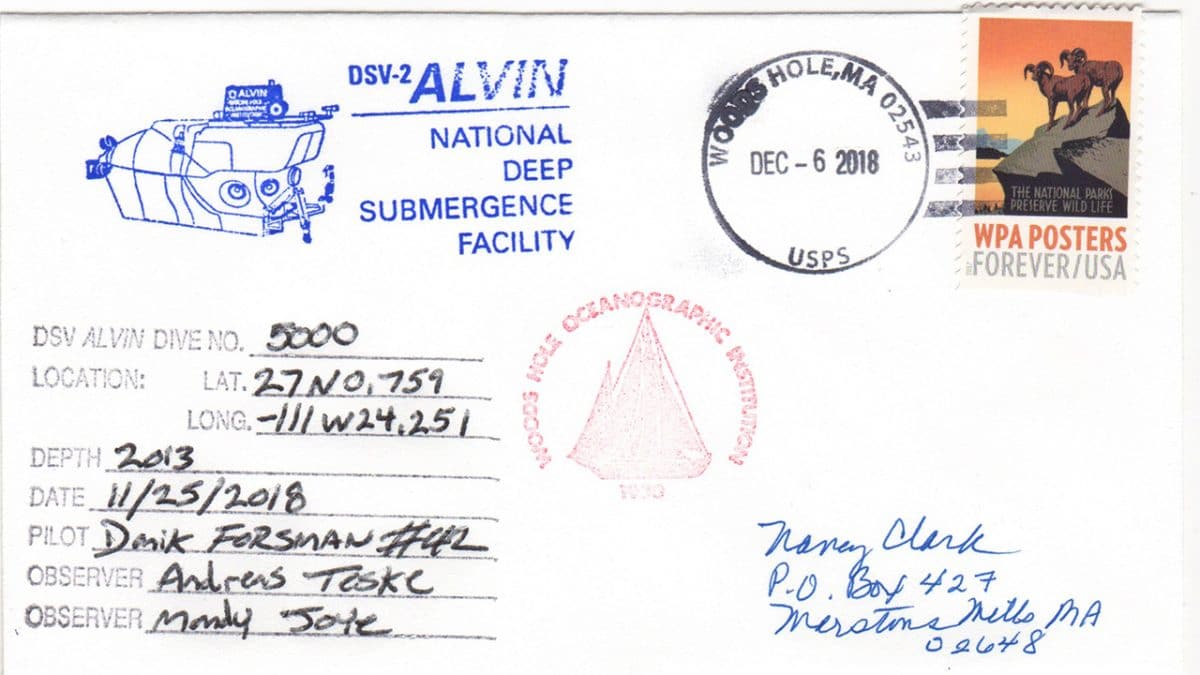 DSV-2 ALVIN
NATIONAL
DEEP
SUBMERGENCE
FACILITY
ALVIN
WOODS HOLE
OCEANOGRAPHIC
INSTITUTION
WOODS HOLE, MA 02543
DEC - 6 2018
USPS
THE NATIONAL PARKS
PRESERVE WILD LIFE
WPA POSTERS
FOREVER/USA
WOODS HOLE OCEANOGRAPHIC INSTITUTION
1930
DSV ALVIN DIVE NO. 5000
LOCATION: LAT. 27 N 0.759
LONG. -111 W 24.251
DEPTH 2013
DATE 11/25/2018
PILOT Danik FORSMAN #42
OBSERVER Andreas Teske
OBSERVER Mandy Joye
Nancy Clark
P.O. Box 427
Marstons Mills MA
02648